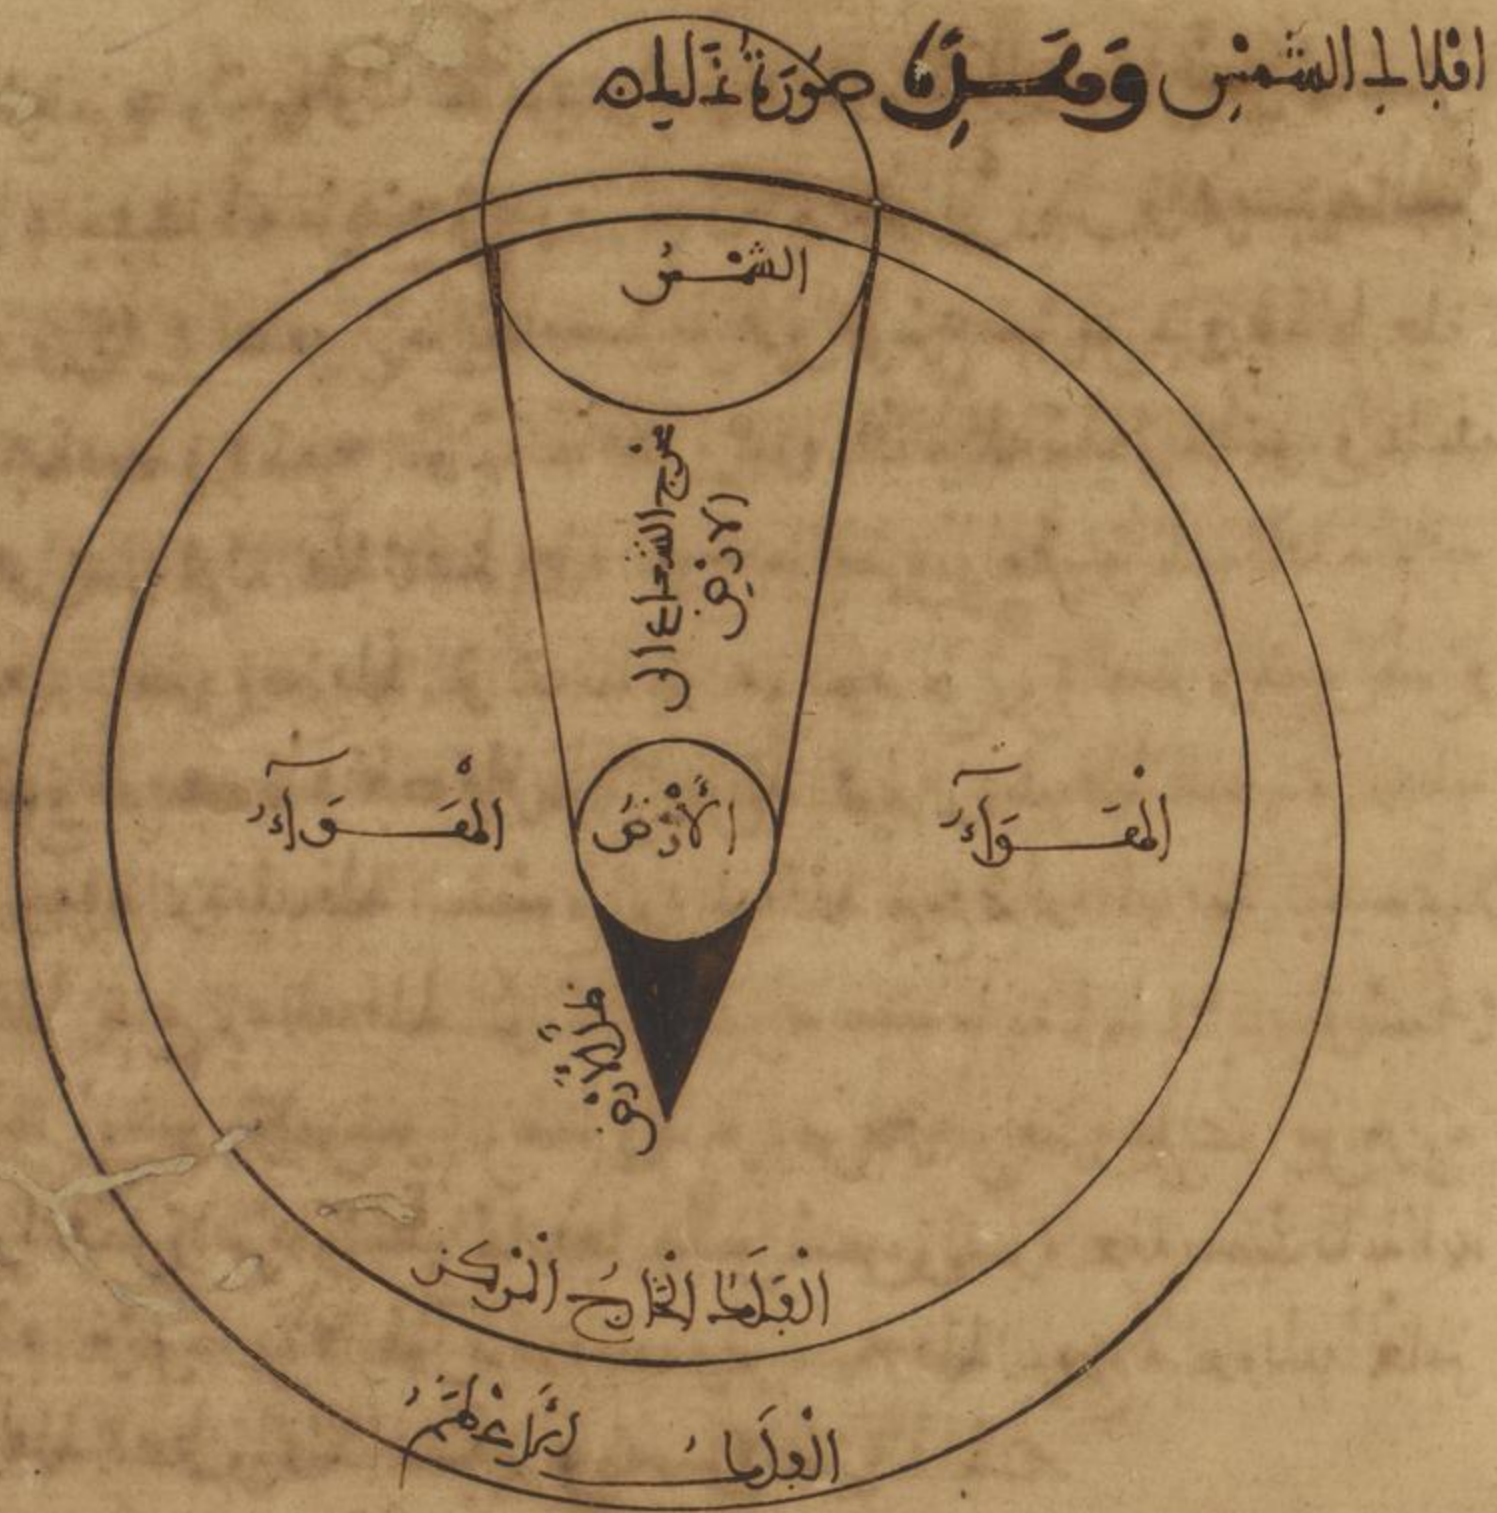 افلاك الشمس وَهَذِهِ صُورَةُ ذَلِك
الشمْسُ
مخرج الشعاع الى
الارض
الْهَوَآءُ
الْأَرْضُ
الْهَوَآءُ
ظل الْأَرْضِ
الْفَلَكُ الْخَارِجُ الْمَرْكز
الْفَلَكُ الْأَعْظَمُ